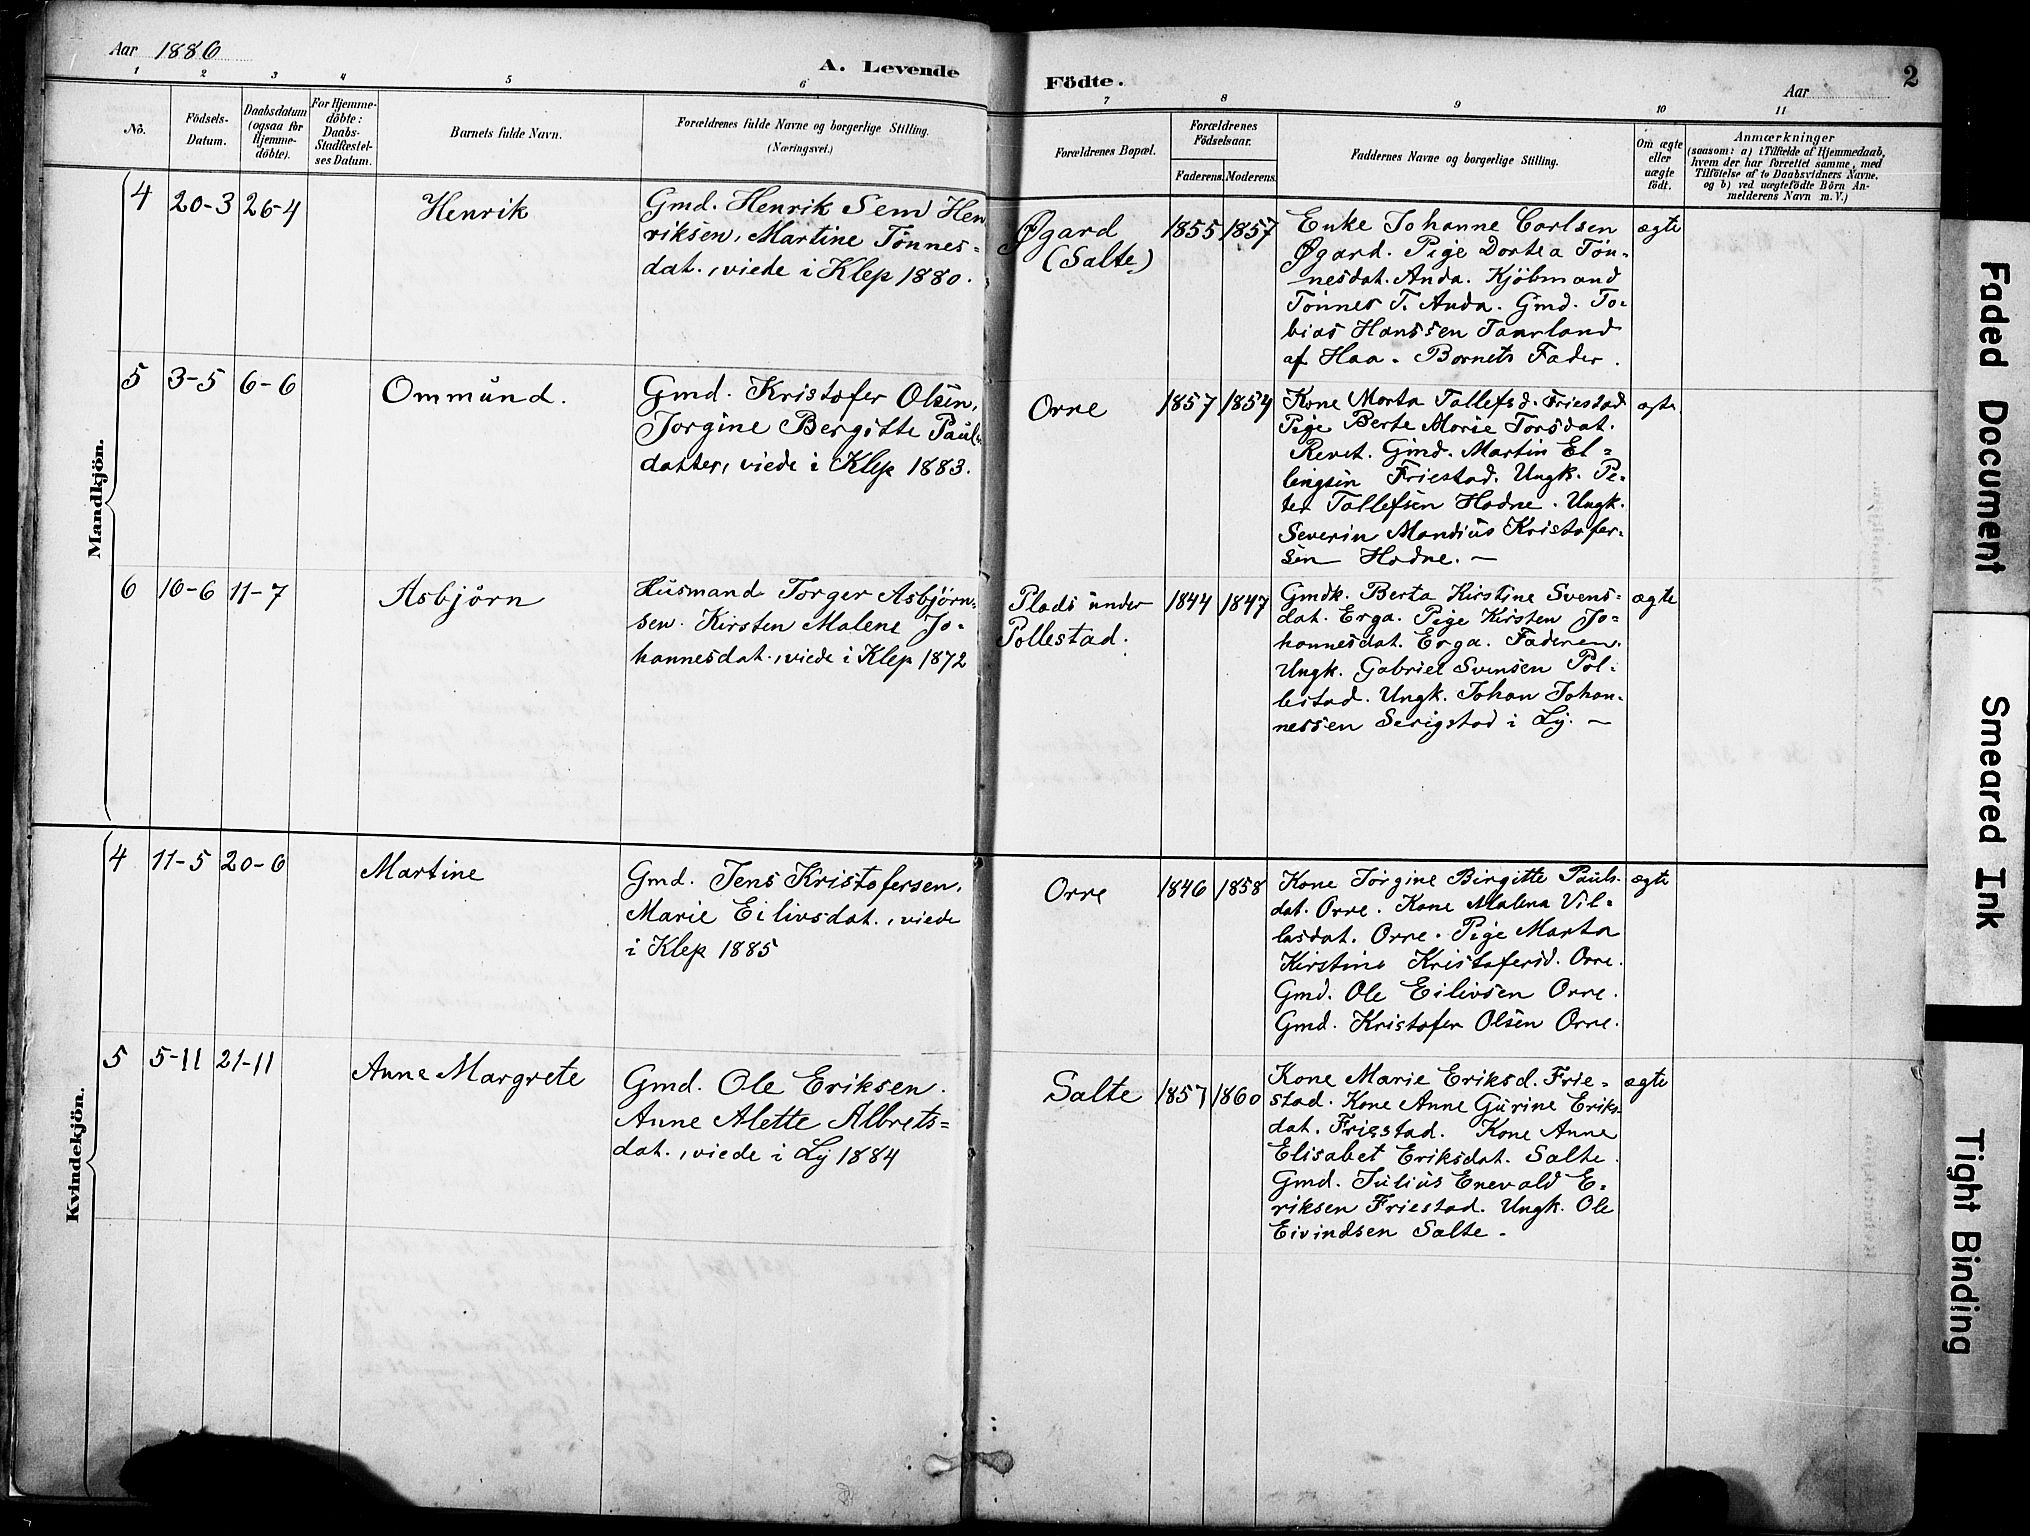 Aar 1886
A. Levende
Födte.
Aar
2
1 2 3 4 5 6
7 8 9 10 11
No.
Födsels-
Datum.
Daabsdatum
(ogsaa for
Hjemme-
döbte).
For Hjemme-
döbte:
Daabs-
Stadfæstel-
ses Datum.
Barnets fulde Navn.
Forældrenes fulde Navne og borgerlige Stilling.
(Næringsvei.)
Forældrenes Bopæl.
Forældrenes
Födselsaar.
Faderens. Moderens.
Faddernes Navne og borgerlige Stilling.
Om ægte
eller
uægte
födt.
Anmærkninger
(saasom: a) i Tilfælde af Hjemmedaab,
hvem der har forrettet samme, med
Tilföielse af to Daabsvidners Navne,
og b) ved uægtefödte Börn An-
melderens Navn m. V.)
Mandkjön.
4 20-3 26-4 Henrik
Gmd. Henrik Sem Hen
riksen, Martine Tönnes=
dat., viede i Klep 1880.
Øgard
(Salte)
1855 1857
Enke Johanne Carlsen
Øgard. Pige Dortea Tön-
nesdat. Anda. Kjöbmand
Tönnes T. Anda. Gmd. To-
bias Hanssen Taarland
af Haa. Barnets Fader.
ægte
5 3-5 6-6 Ommund.
Gmd. Kristofer Olsen,
Jorgine Bergitte Pauls
datter, viede i Klep 1883.
Orre
1857 1854
Kone Marta Tallefsd. Friestad
Pige Berte Marie Torsdat.
Revet. Gmd. Martin El=
lingsen Friestad. Ungk. Pe-
ter Tallefsen Hodne. Ungk.
Severin Mandius Kristofer-
sen Hodne. —
ægte
6 10-6 11-7 Asbjörn
Husmand Torger Asbjörn-
sen. Kirsten Malene Jo-
hannesdat., viede i Klep 1872
Plads under
Pollestad.
1844 1847
Gmdk. Berta Kirstine Svens-
dat. Erga. Pige Kirsten Jo=
hannesdat. Erga. Faderen.
Ungk. Gabriel Svensen Pol-
lestad. Ungk. Johan Johan-
nessen Serigstad i Ly. —
ægte
Kvindekjön.
4 11-5 20-6 Martine
Gmd. Jens Kristofersen,
Marie Eilivsdat., viede
i Klep 1885
Orre
1846 1858
Kone Jorgine Birgitte Pauls-
dat. Orre. Kone Malena Vil=
lasdat. Orre. Pige Marta
Kirstine Kristofersd. Orre.
Gmd. Ole Eilivsen Orre.
Gmd. Kristofer Olsen Orre.
ægte
5 5-11 21-11 Anne Margrete
Gmd. Ole Eriksen.
Anne Alette Albrets=
dat., viede i Ly 1884
Salte
1857 1860
Kone Marie Eriksd. Frie=
stad. Kone Anne Gurine Eriks-
dat. Friestad. Kone Anne
Elisabet Eriksdat. Salte.
Gmd. Julius Enevald E-
riksen Friestad. Ungk. Ole
Eivindsen Salte.
ægte
Faded Document
Smeared Ink
Tight Binding